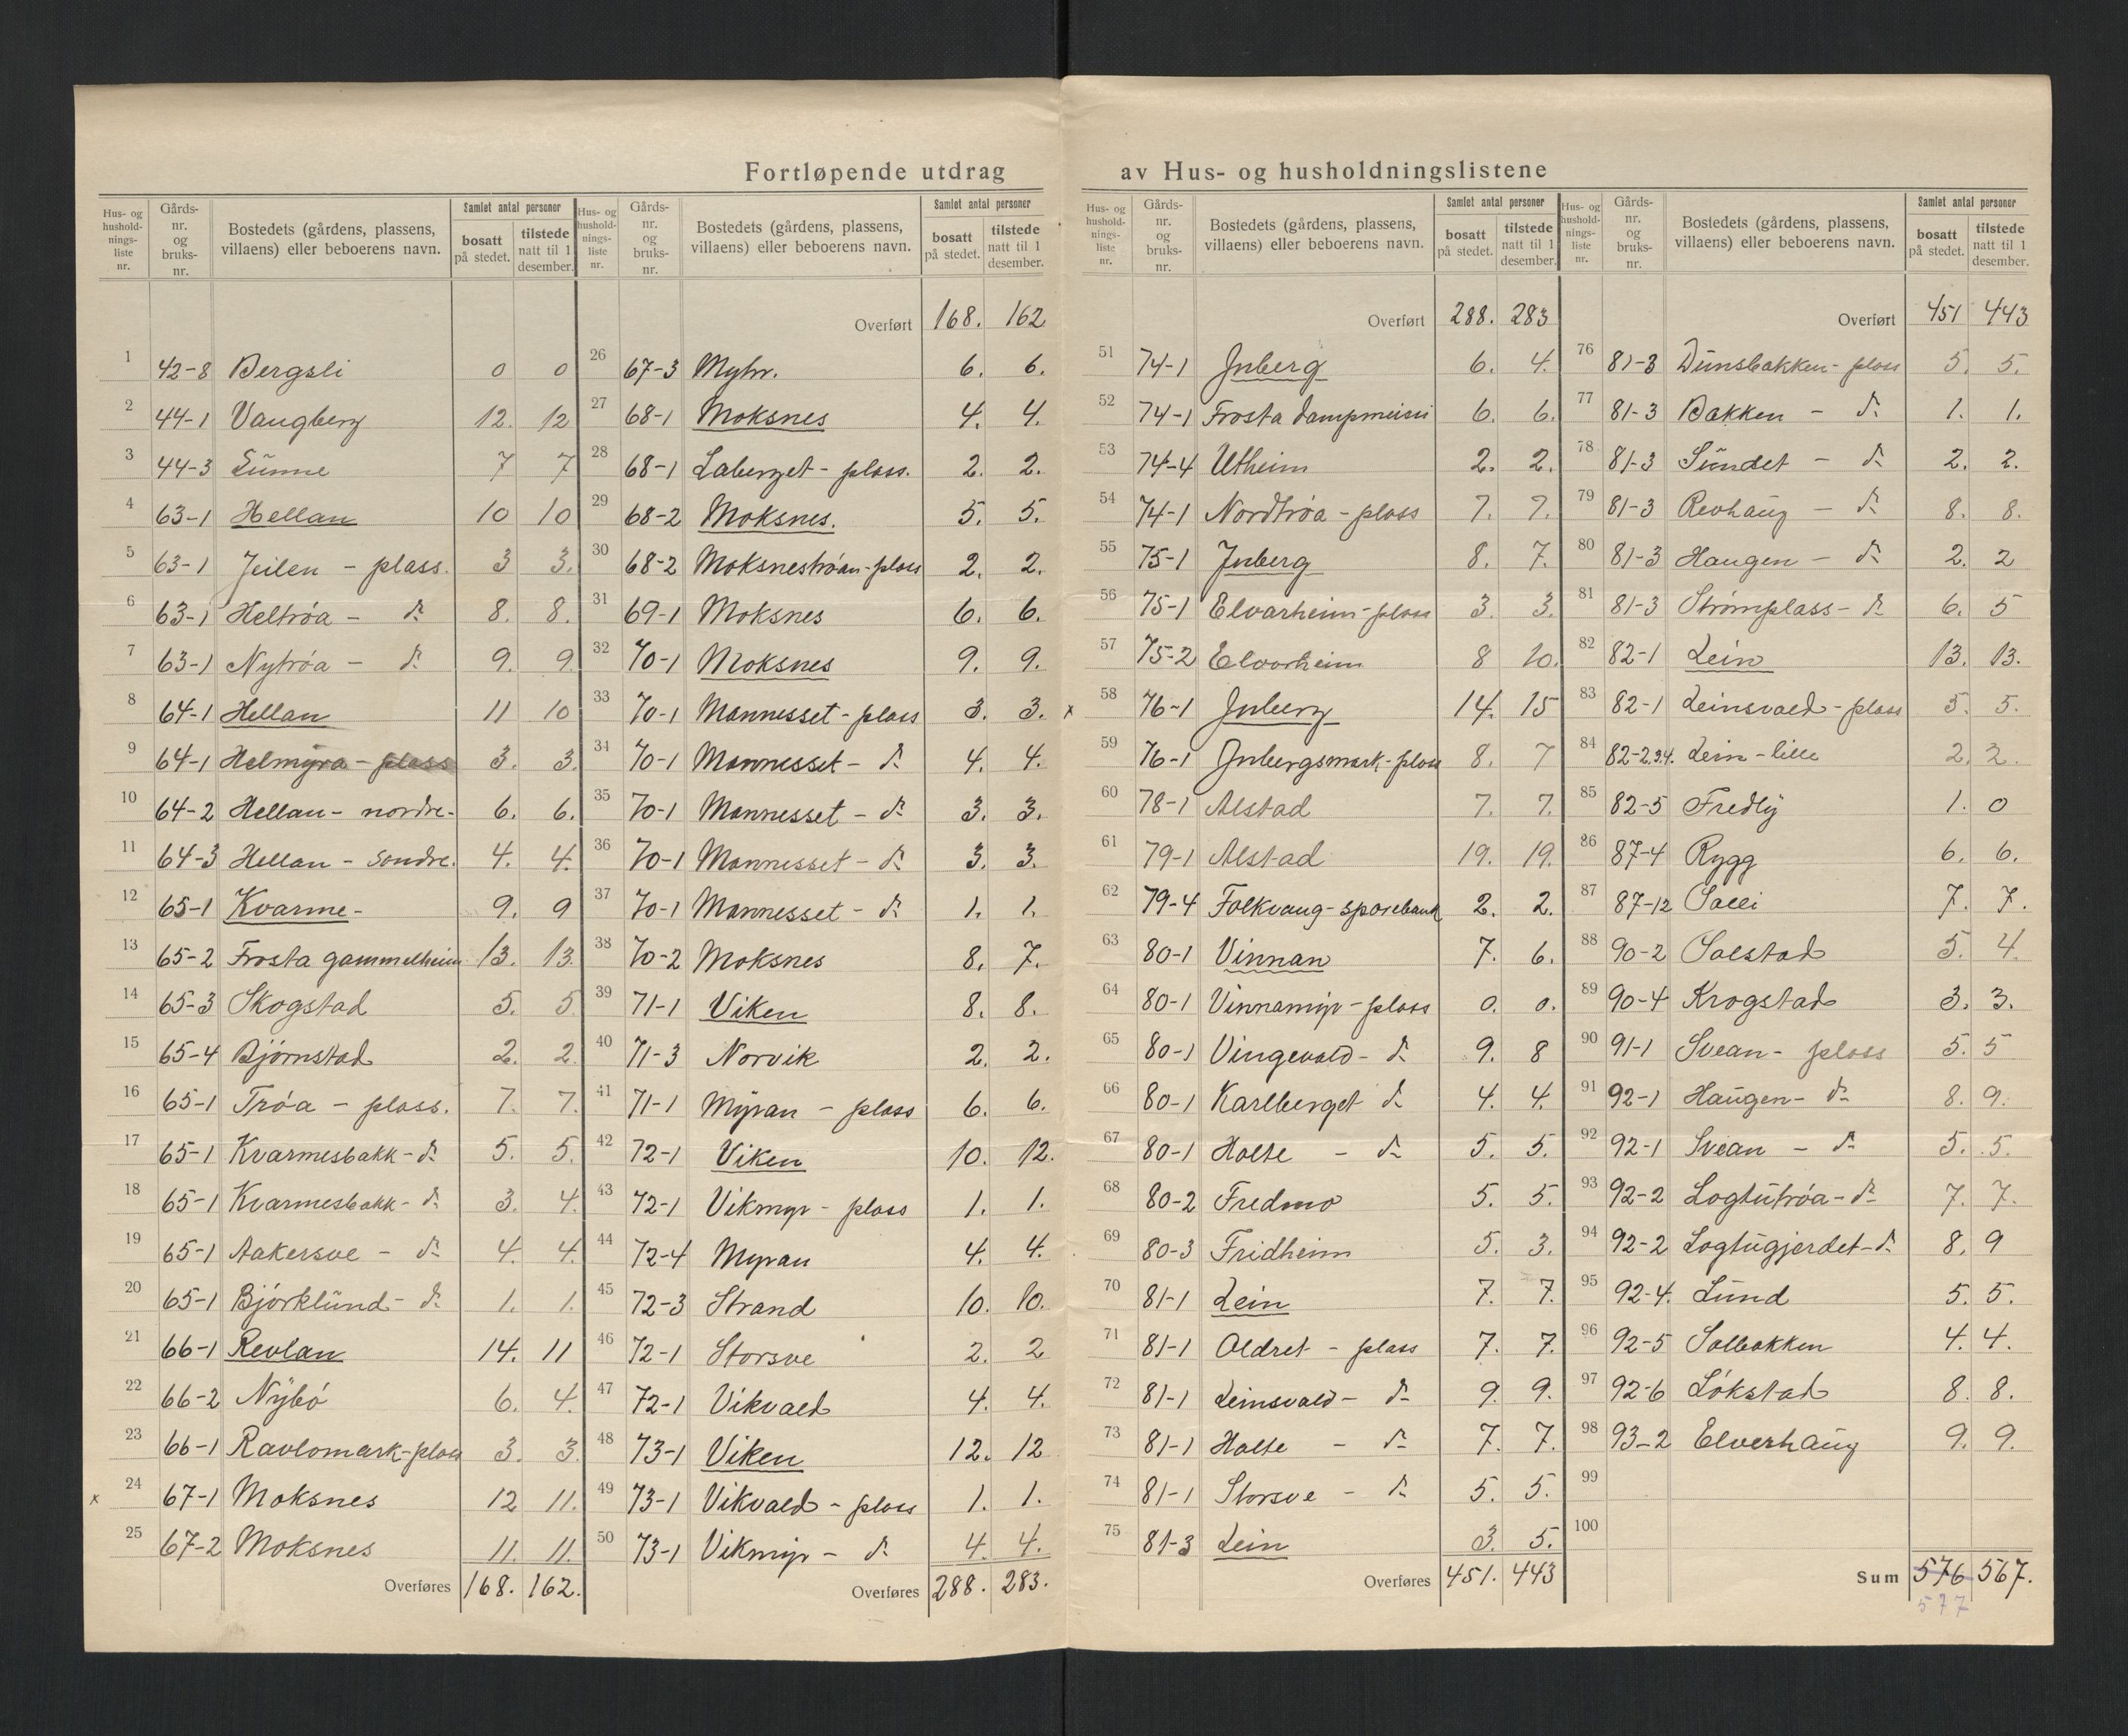 Fortløpende utdrag av Hus- og husholdningslistene
Hus- og husholdnings-liste nr. | Gårds-nr. og bruks-nr. | Bostedets (gårdens, plassens, villaens) eller beboerens navn. | Samlet antal personer | bosatt på stedet. | tilstede natt til 1 desember.
1 42-8 Bergsli 0 0
2 44-1 Vangberg 12. 12
3 44-3 Lünne 7 7
4 63-1 Hellan 10 10
5 63-1 Jeilen - plass. 3 3.
6 63-1 Heltrøa - do 8. 8.
7 63-1 Nytrøa - do 9. 9.
8 64-1 Hellan 11 10
9 64-1 Helmyra - plass 3. 3.
10 64-2 Hellan - nordre - 6. 6.
11 64-3 Hellan - søndre. 4. 4.
12 65-1 Kvarme - 9. 9
13 65-2 Frosta gammelheim 13. 13.
14 65-3 Skogstad 5. 5
15 65-4 Bjørnstad 2. 2.
16 65-1 Trøa - plass. 7. 7.
17 65-1 Kvarmesbakk - do 5. 5.
18 65-1 Kvarmesbakk - do 3. 4.
19 65-1 Aakersve - do 4. 4.
20 65-1 Bjørklünd - do 1. 1.
21 66-1 Revlan 14. 11
22 66-2 Nybø 6. 4.
23 66-1 Ravlomark - plass 3. 3.
x 24 67-1 Moksnes 12 11.
25 67-2 Moksnes 11. 11.
Overføres 168. 162.
Hus- og hushold-nings-liste nr. | Gårds-nr. og bruks-nr. | Bostedets (gårdens, plassens, villaens) eller beboerens navn. | Samlet antal personer | bosatt på stedet. | tilstede natt til 1 desember.
Overført 168. 162
26 67-3 Myhr. 6. 6.
27 68-1 Moksnes 4. 4.
28 68-1 Laberget - plass. 2. 2.
29 68-2 Moksnes. 5. 5.
30 68-2 Moksnestrøan - plass 2. 2.
31 69-1 Moksnes 6. 6.
32 70-1 Moksnes 9. 9.
33 70-1 Mannesset - plass 3. 3.
34 70-1 Mannesset - do 4. 4.
35 70-1 Mannesset - do 3. 3.
36 70-1 Mannesset - do 3. 3.
37 70-1 Mannesset - do 1. 1.
38 70-2 Moksnes 8. 7.
39 71-1 Viken 8. 8.
40 71-3 Norvik 2. 2.
41 71-1 Myran - plass 6. 6.
42 72-1 Viken 10. 12.
43 72-1 Vikmyr - plass 1. 1.
44 72-4 Myran 4. 4.
45 72-3 Strand 10. 10.
46 72-1 Storsve 2. 2
47 72-1 Vikvald 4. 4.
48 73-1 Viken 12. 12
49 73-1 Vikvald - plass 1. 1.
50 73-1 Vikmyr - do 4. 4.
Overføres 288. 283.
Hus- og hushold-nings-liste nr. | Gårds-nr. og bruks-nr. | Bostedets (gårdens, plassens, villaens) eller beboerens navn. | Samlet antal personer | bosatt på stedet. | tilstede natt til 1 desember.
Overført 288. 283
51 74-1 Juberg 6. 4.
52 74-1 Frosta dampmeieri 6. 6.
53 74-4 Utheim 2. 2.
54 74-1 Nordtrøa - plass 7. 7.
55 75-1 Juberg 8. 7.
56 75-1 Elvarheim - plass 3. 3.
57 75-2 Elvorheim 8 10.
x 58 76-1 Juberg 14. 15
59 76-1 Jubergsmark - plass 8. 7
60 78-1 Alstad 7. 7.
61 79-1 Alstad 19. 19.
62 79-4 Folkvang - sparebank 2. 2.
63 80-1 Vinnan 7. 6.
64 80-1 Vinnamyr - plass 0. 0.
65 80-1 Vingevald - do 9. 8
66 80-1 Karlberget do 4. 4.
67 80-1 Holte - do 5. 5.
68 80-2 Fredmo 5. 5.
69 80-3 Fridheim 5. 3.
70 81-1 Lein 7. 7.
71 81-1 Oldret - plass 7. 7.
72 81-1 Leinsvald - do 9. 9.
73 81-1 Holte - do 7. 7.
74 81-1 Storsve - do 5. 5.
75 81-3 Lein 3. 5.
Overføres 451. 443
Hus- og hushold-nings-liste nr. | Gårds-nr. og bruks-nr. | Bostedets (gårdens, plassens, villaens) eller beboerens navn. | Samlet antal personer | bosatt på stedet. | tilstede natt til 1 desember.
Overført 451 443
76 81-3 Dünsbakken - plass 5. 5.
77 81-3 Bakken - do 1. 1.
78 81-3 Sündet - do 2. 2.
79 81-3 Revhaug - do 8. 8.
80 81-3 Haugen - do 2. 2
81 81-3 Strømplass - do 6. 5
82 82-1 Lein 13. 13.
83 82-1 Leinsvald - plass 5. 5.
84 82-2.3.4. Lein - lille 2. 2.
85 82-5 Fredly 1. 0
86 87-4 Rygg 6. 6.
87 87-12 Salli 7. 7.
88 90-2 Solstad 5. 4.
89 90-4 Krogstad 3. 3.
90 91-1 Svean - plass 5. 5
91 92-1 Haügen - do 8. 9.
92 92-1 Svean - do 5. 5.
93 92-2 Logtütrøa - do 7. 7.
94 92-2 Logtügjerdet - do 8. 9
95 92-4. Lünd 5. 5.
96 92-5 Solbakken 4. 4.
97 92-6 Løkstad 8. 8.
98 93-2 Elverhaüg 9. 9.
99
100
Sum 576 567.
577